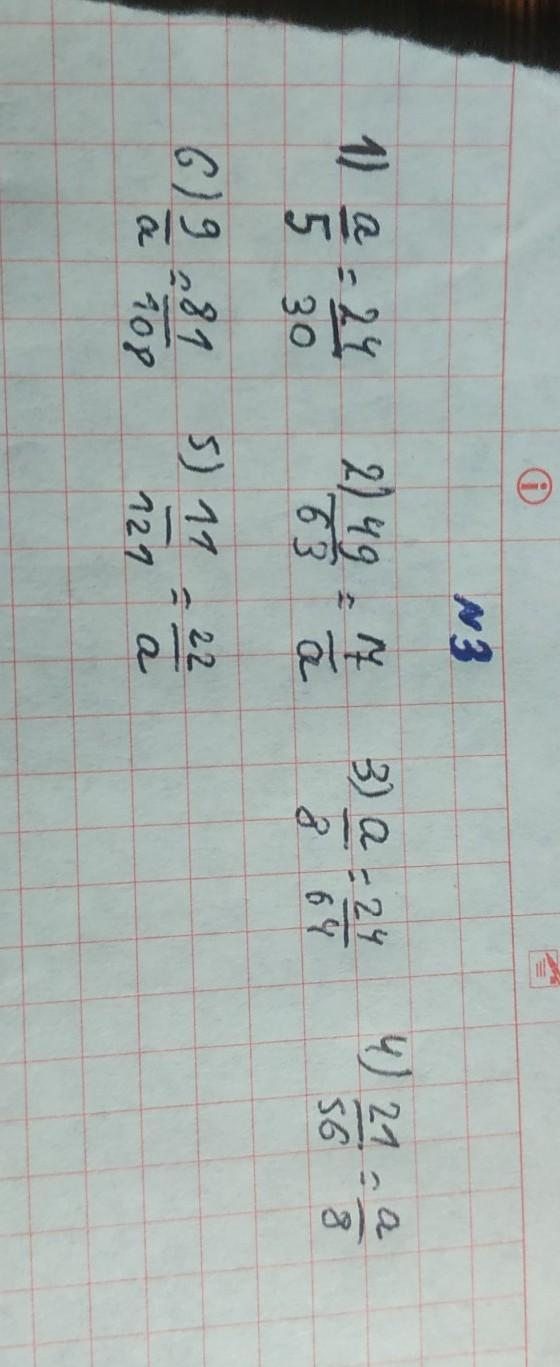 №3
1) a/5 = 24/30 2) 49/63 = 7/a 3) a/8 = 24/64 4) 21/56 = a/8
6) 9/a = 81/108 5) 11/121 = 22/a